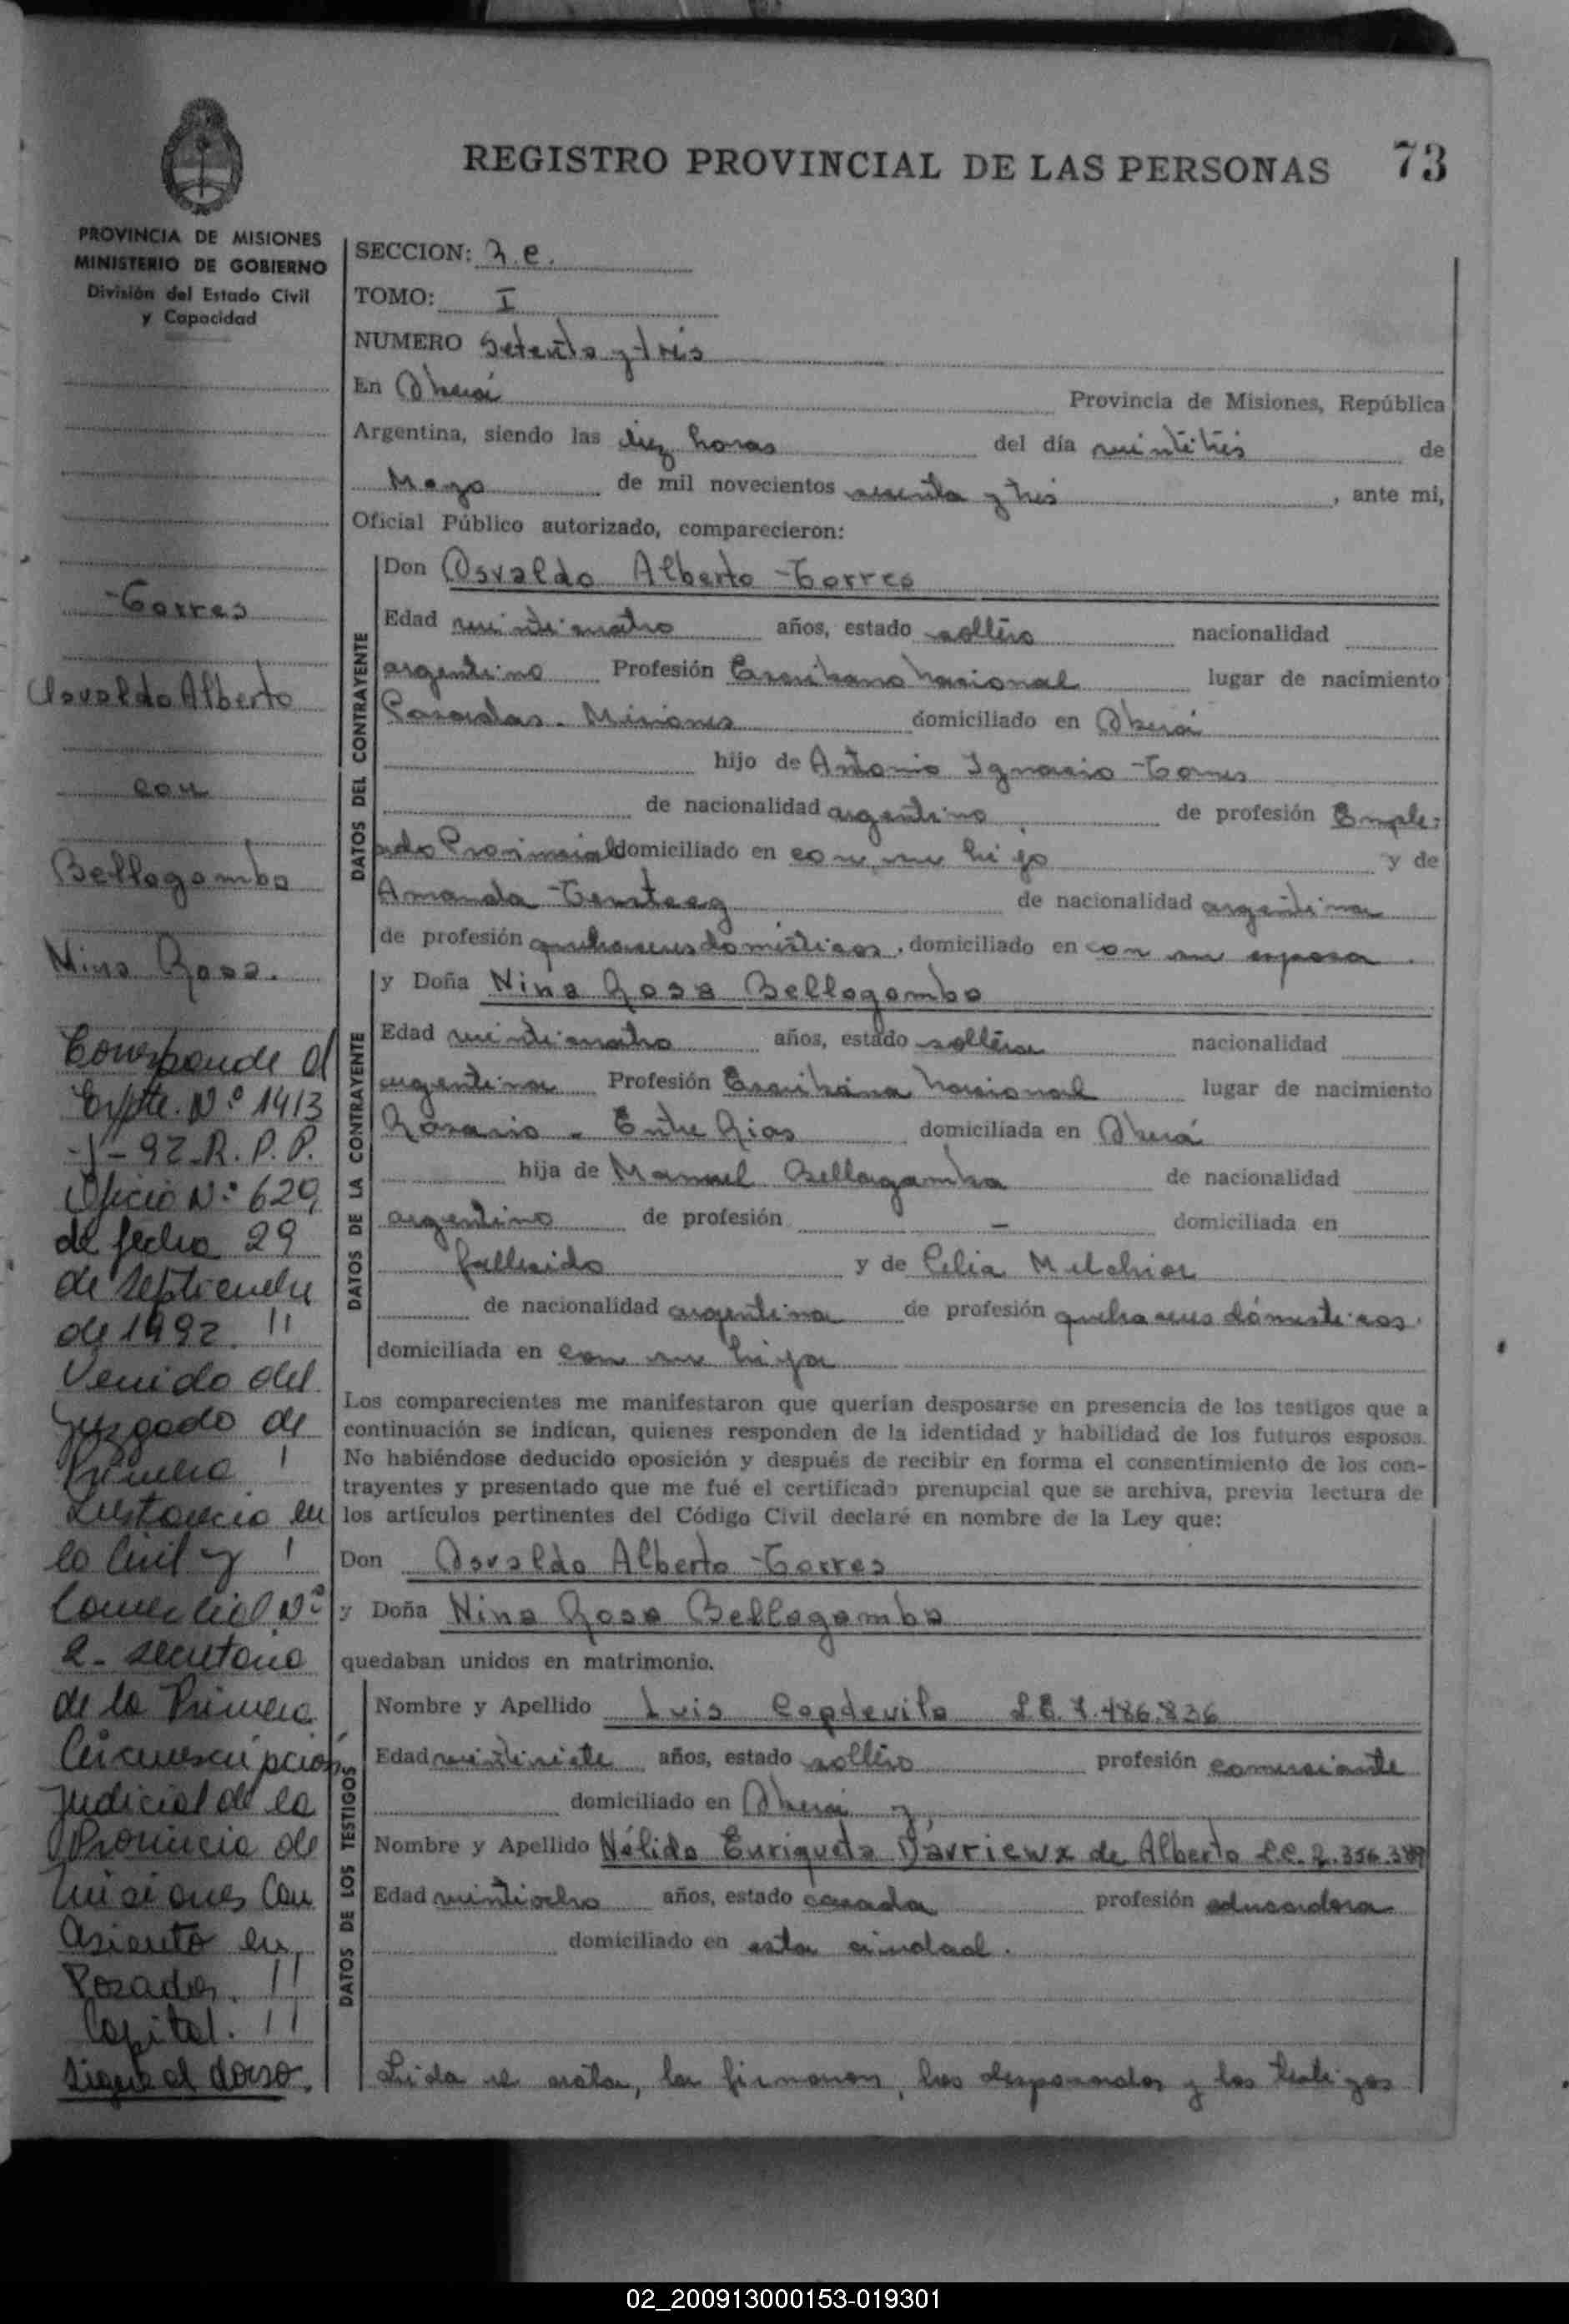 REGISTRO PROVINCIAL DE LAS PERSONAS 73
PROVINCIA DE MISIONES
MINISTERIO DE GOBIERNO
División del Estado Civil
y Capacidad
Torres
Osvaldo Alberto
con
Bellagamba
Nina Rosa.
Corresponde al
Expte. Nº 1413
92-R.P.P.
Oficio Nº 629,
de fecha 29
de Septiembre
de 1992. !!
Venido del
Juzgado de
Primera !
Instancia en
lo Civil y !
Comercial Nº
2- Secretaria
de la Primera
Circunscripcion
Judicial de la
Provincia de
Misiones Con
asiento en
Posadas. !!
Capital. !!
Sigue al dorso.
SECCION: 2.C.
TOMO: I
NUMERO Setenta y tres
En Oberá Provincia de Misiones, República
Argentina, siendo las diez horas del día veintitrés de
Mayo de mil novecientos sesenta y tres, ante mi,
Oficial Público autorizado, comparecieron:
DATOS DEL CONTRAYENTE
Don Osvaldo Alberto Torres
Edad veinticuatro años, estado soltero nacionalidad
argentino Profesión Escribano Nacional lugar de nacimiento
Posadas - Misiones domiciliado en Oberá
hijo de Antonio Ignacio Torres
de nacionalidad argentino de profesión Emple-
ado Provincial domiciliado en con su hijo y de
Amanda de nacionalidad argentina
de profesión quehaceres domésticos, domiciliado en con su esposo.
DATOS DE LA CONTRAYENTE
y Doña Nina Rosa Bellagamba
Edad veinticuatro años, estado soltera nacionalidad
argentina Profesión Escribana Nacional lugar de nacimiento
Rosario - Entre Rios domiciliada en Oberá
hija de Manuel Bellagamba de nacionalidad
argentino de profesión - domiciliada en
fallecido y de Celia Melchior
de nacionalidad argentina de profesión quehaceres domesticos.
domiciliada en con su hija
Los comparecientes me manifestaron que querían desposarse en presencia de los testigos que a
continuación se indican, quienes responden de la identidad y habilidad de los futuros esposos.
No habiéndose deducido oposición y después de recibir en forma el consentimiento de los con-
trayentes y presentado que me fué el certificado prenupcial que se archiva, previa lectura de
los artículos pertinentes del Código Civil declaré en nombre de la Ley que:
Don Osvaldo Alberto Torres
y Doña Nina Rosa Bellagamba
quedaban unidos en matrimonio.
DATOS DE LOS TESTIGOS
Nombre y Apellido Luis Capdevila L.E. 7.486.836
Edad veintisiete años, estado soltero profesión comerciante
domiciliado en Oberá y,
Nombre y Apellido Nélida Enriqueta Darrieux de Alberto L.C. 2.356.389
Edad veintiocho años, estado casada profesión educadora
domiciliado en esta ciudad.
Leida el acta, la firmaron, los desposados y los testigos
02_200913000153-019301